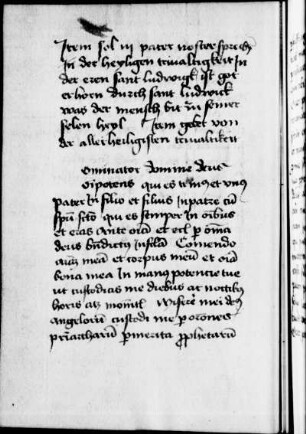 Item sol iij pater noster sprech
In der heyligen trivaltigkeit in
der eren sant ludwigk ist got
erhorn durch sant ludwick
was der mensch bit zu seiner
selen heyl Item gebet von
der aller heiligisten trivaltikeit
ominator domine deus
oipotens qui es trinus et unus
pater in filio et filius in patre cu
spu scto qui es semper in oibus
et eras ante oia et eris p omia
deus bndictus in secula Comendo
aiam mea et corpus meu et oia
bona mea in manus potencie tue
ut custodias me diebus ac noctibus
horis atq momentis Miserere mei deus
angeloru custodi me p oraciones
priarcharu p merita prophetaru